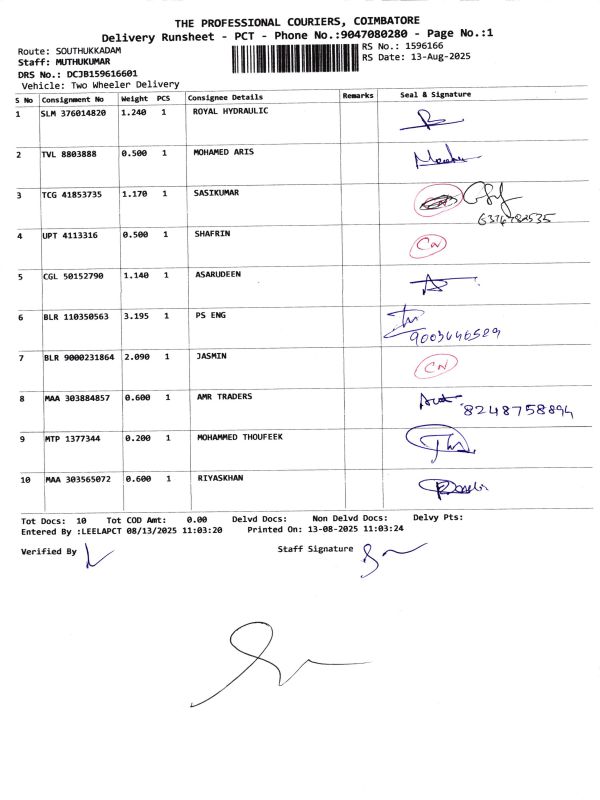 THE PROFESSIONAL COURIERS, COIMBATORE
Delivery Runsheet - PCT - Phone No.:9047080280 - Page No.:1
Route: SOUTHUKKADAM
RS No.: 1596166
Staff: MUTHUKUMAR
RS Date: 13-Aug-2025
DRS No.: DCJB159616601
Vehicle: Two Wheeler Delivery
S No Consignment No Weight PCS Consignee Details Remarks Seal & Signature
1 SLM 376014820 1.240 1 ROYAL HYDRAULIC
2 TVL 8803888 0.500 1 MOHAMED ARIS
3 TCG 41853735 1.170 1 SASIKUMAR
4 UPT 4113316 0.500 1 SHAFRIN CN
5 CGL 50152790 1.140 1 ASARUDEEN
6 BLR 110350563 3.195 1 PS ENG
9003446589
7 BLR 9000231864 2.090 1 JASMIN CN
8 MAA 303884857 0.600 1 AMR TRADERS
8248758894
9 MTP 1377344 0.200 1 MOHAMMED THOUFEEK
10 MAA 303565072 0.600 1 RIYASKHAN
Tot Docs: 10 Tot COD Amt: 0.00 Delvd Docs: Non Delvd Docs: Delvy Pts:
Entered By :LEELAPCT 08/13/2025 11:03:20 Printed On: 13-08-2025 11:03:24
Verified By
Staff Signature